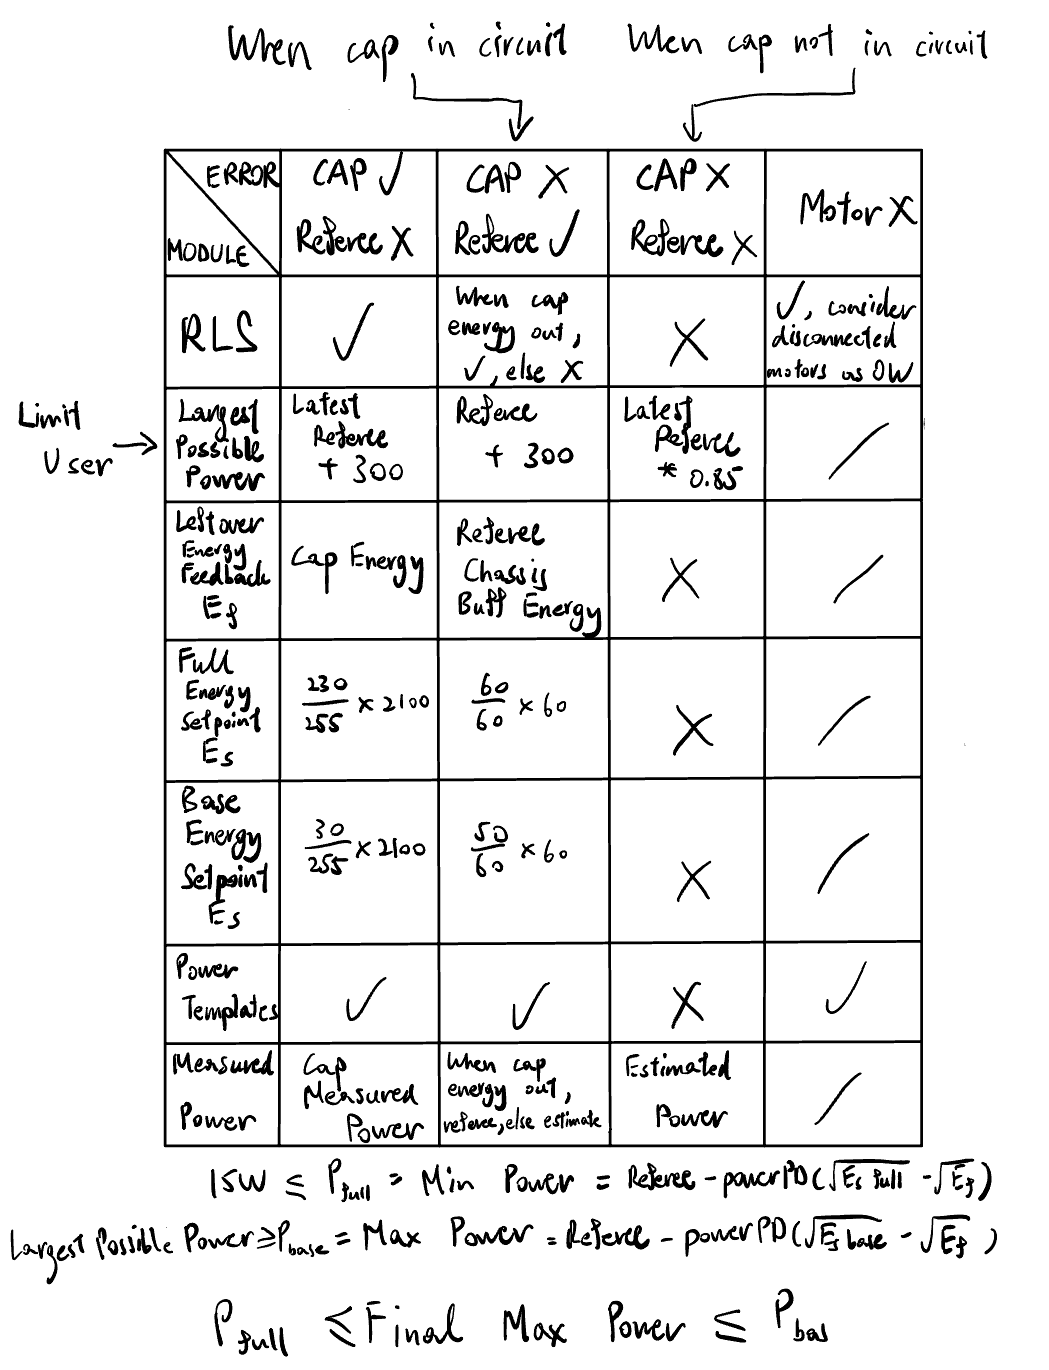 When cap in circuit
When cap not in circuit
ERROR
MODULE
CAP ✓
Referee X
CAP X
Referee ✓
CAP X
Referee X
Motor X
RLS
✓
When cap
energy out,
✓, else X
X
✓, consider
disconnected
motors as 0W
Limit
User
Largest
Possible
Power
Latest
Referee
+ 300
Referee
+ 300
Latest
Referee
* 0.85
/
Leftover
Energy
Feedback
Ef
Cap Energy
Referee
Chassis
Buff Energy
X
/
Full
Energy
Setpoint
Es
230/255 × 2100
60/60 × 60
X
/
Base
Energy
Setpoint
Es
30/255 × 2100
50/60 × 60
X
/
Power
Templates
✓
✓
X
✓
Measured
Power
Cap
Measured
Power
When cap
energy out,
referee, else estimate
Estimated
Power
/
15W ≤ Pfull = Min Power = Referee - powerPD(√Es full - √Ef)
Largest Possible Power ≥ Pbase = Max Power = Referee - powerPD(√Es base - √Ef)
Pfull ≤ Final Max Power ≤ Pbas